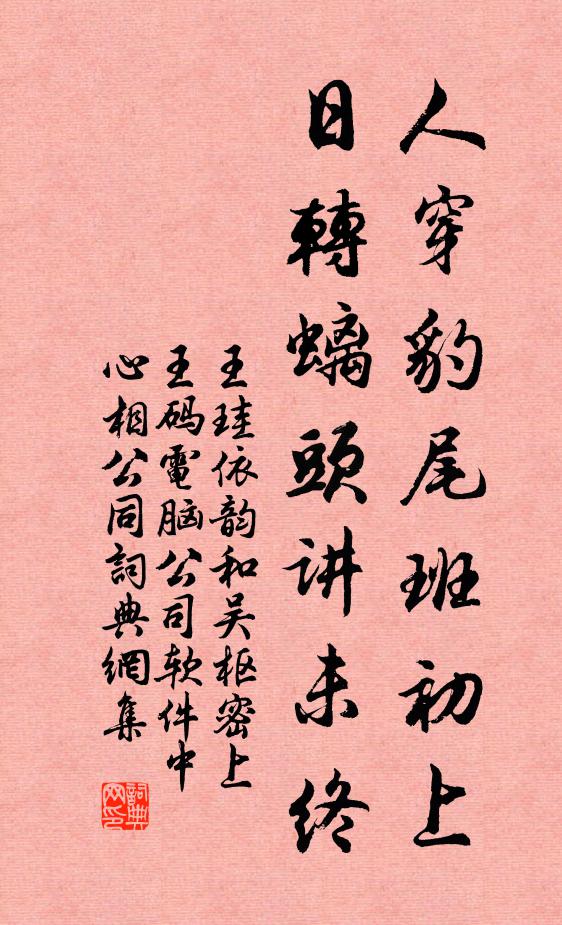 人穿豹尾班初上
日轉螭頭讲未终
王珪依韵和吴枢密上
王码電脑公司软件中
心相公同詞典網集
詞典
网印